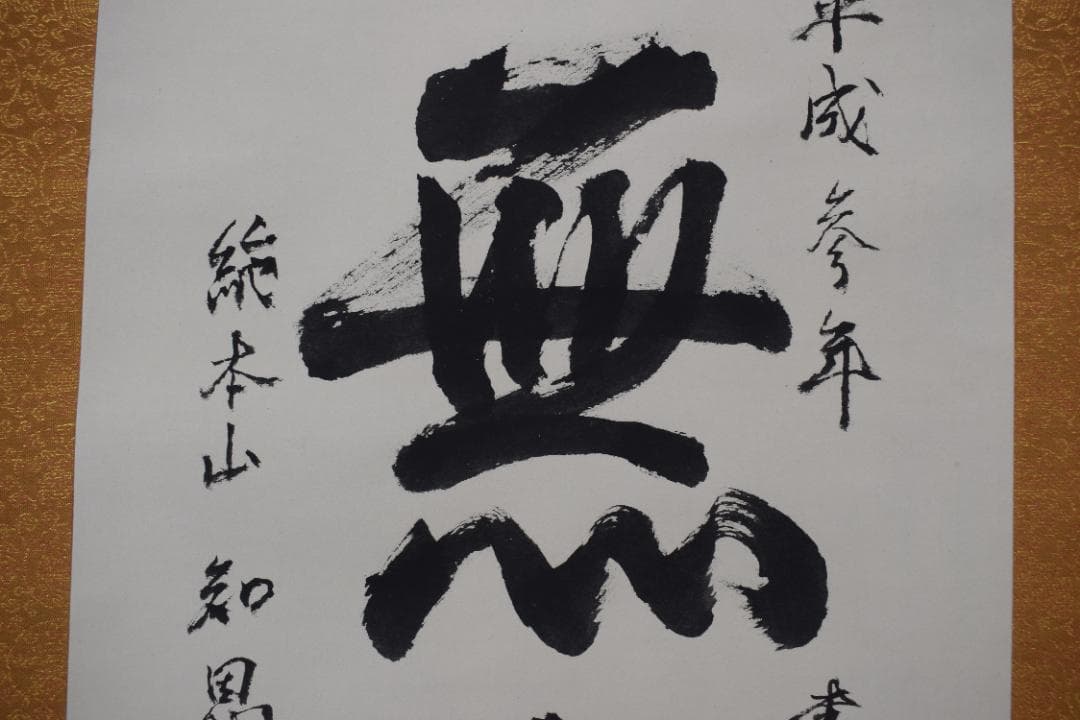 平成参年
無
総本山 知恩